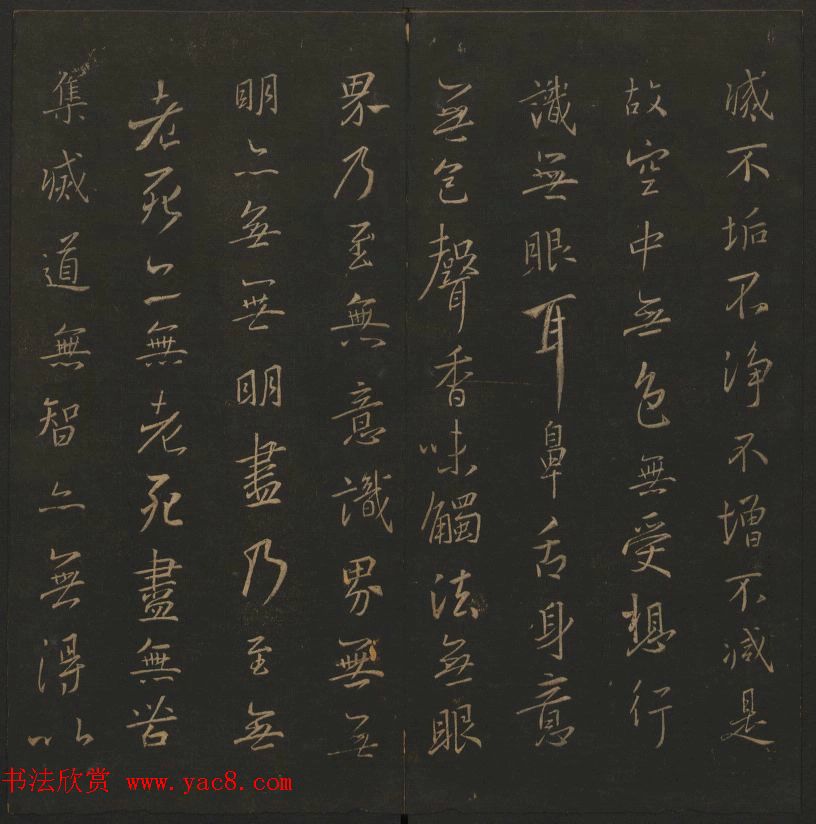 滅不垢不淨不增不減是
故空中無色無受想行
識無眼耳鼻舌身意
無色聲香味觸法無眼
界乃至無意識界無無
明亦無無明盡乃至無
老死亦無老死盡無苦
集滅道無智亦無得以
书法欣赏 www.yac8.com